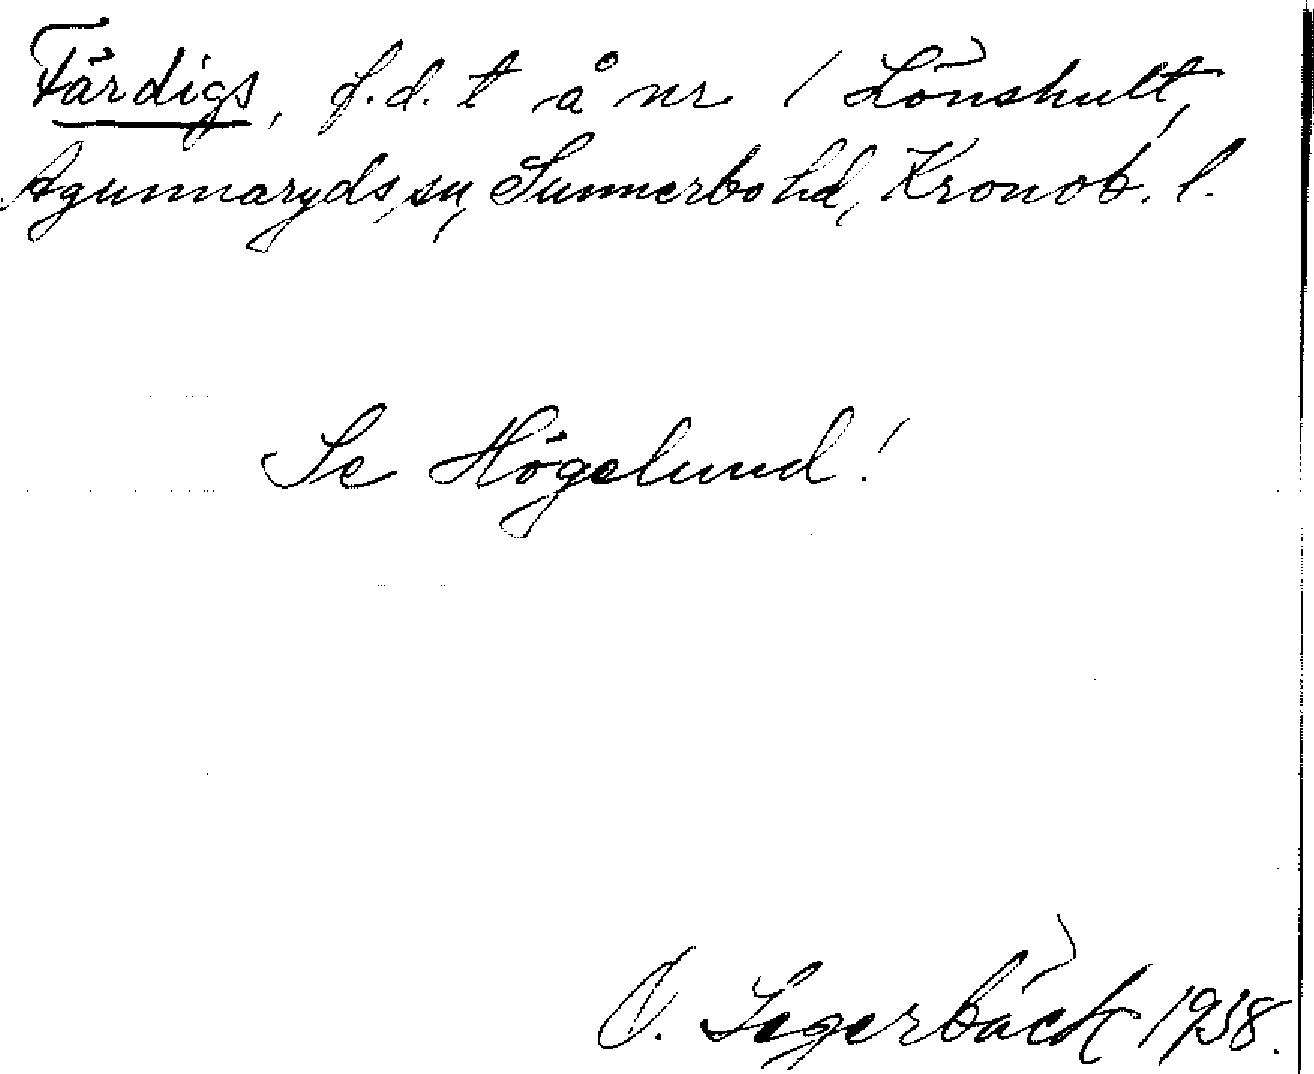 Färdigs, f.d. t å nr 1 Lönshult,
Agunnaryds sn, Sunnerbo hd, Kronob. l.
Se Högelund!
O. Segerbäck 1938.